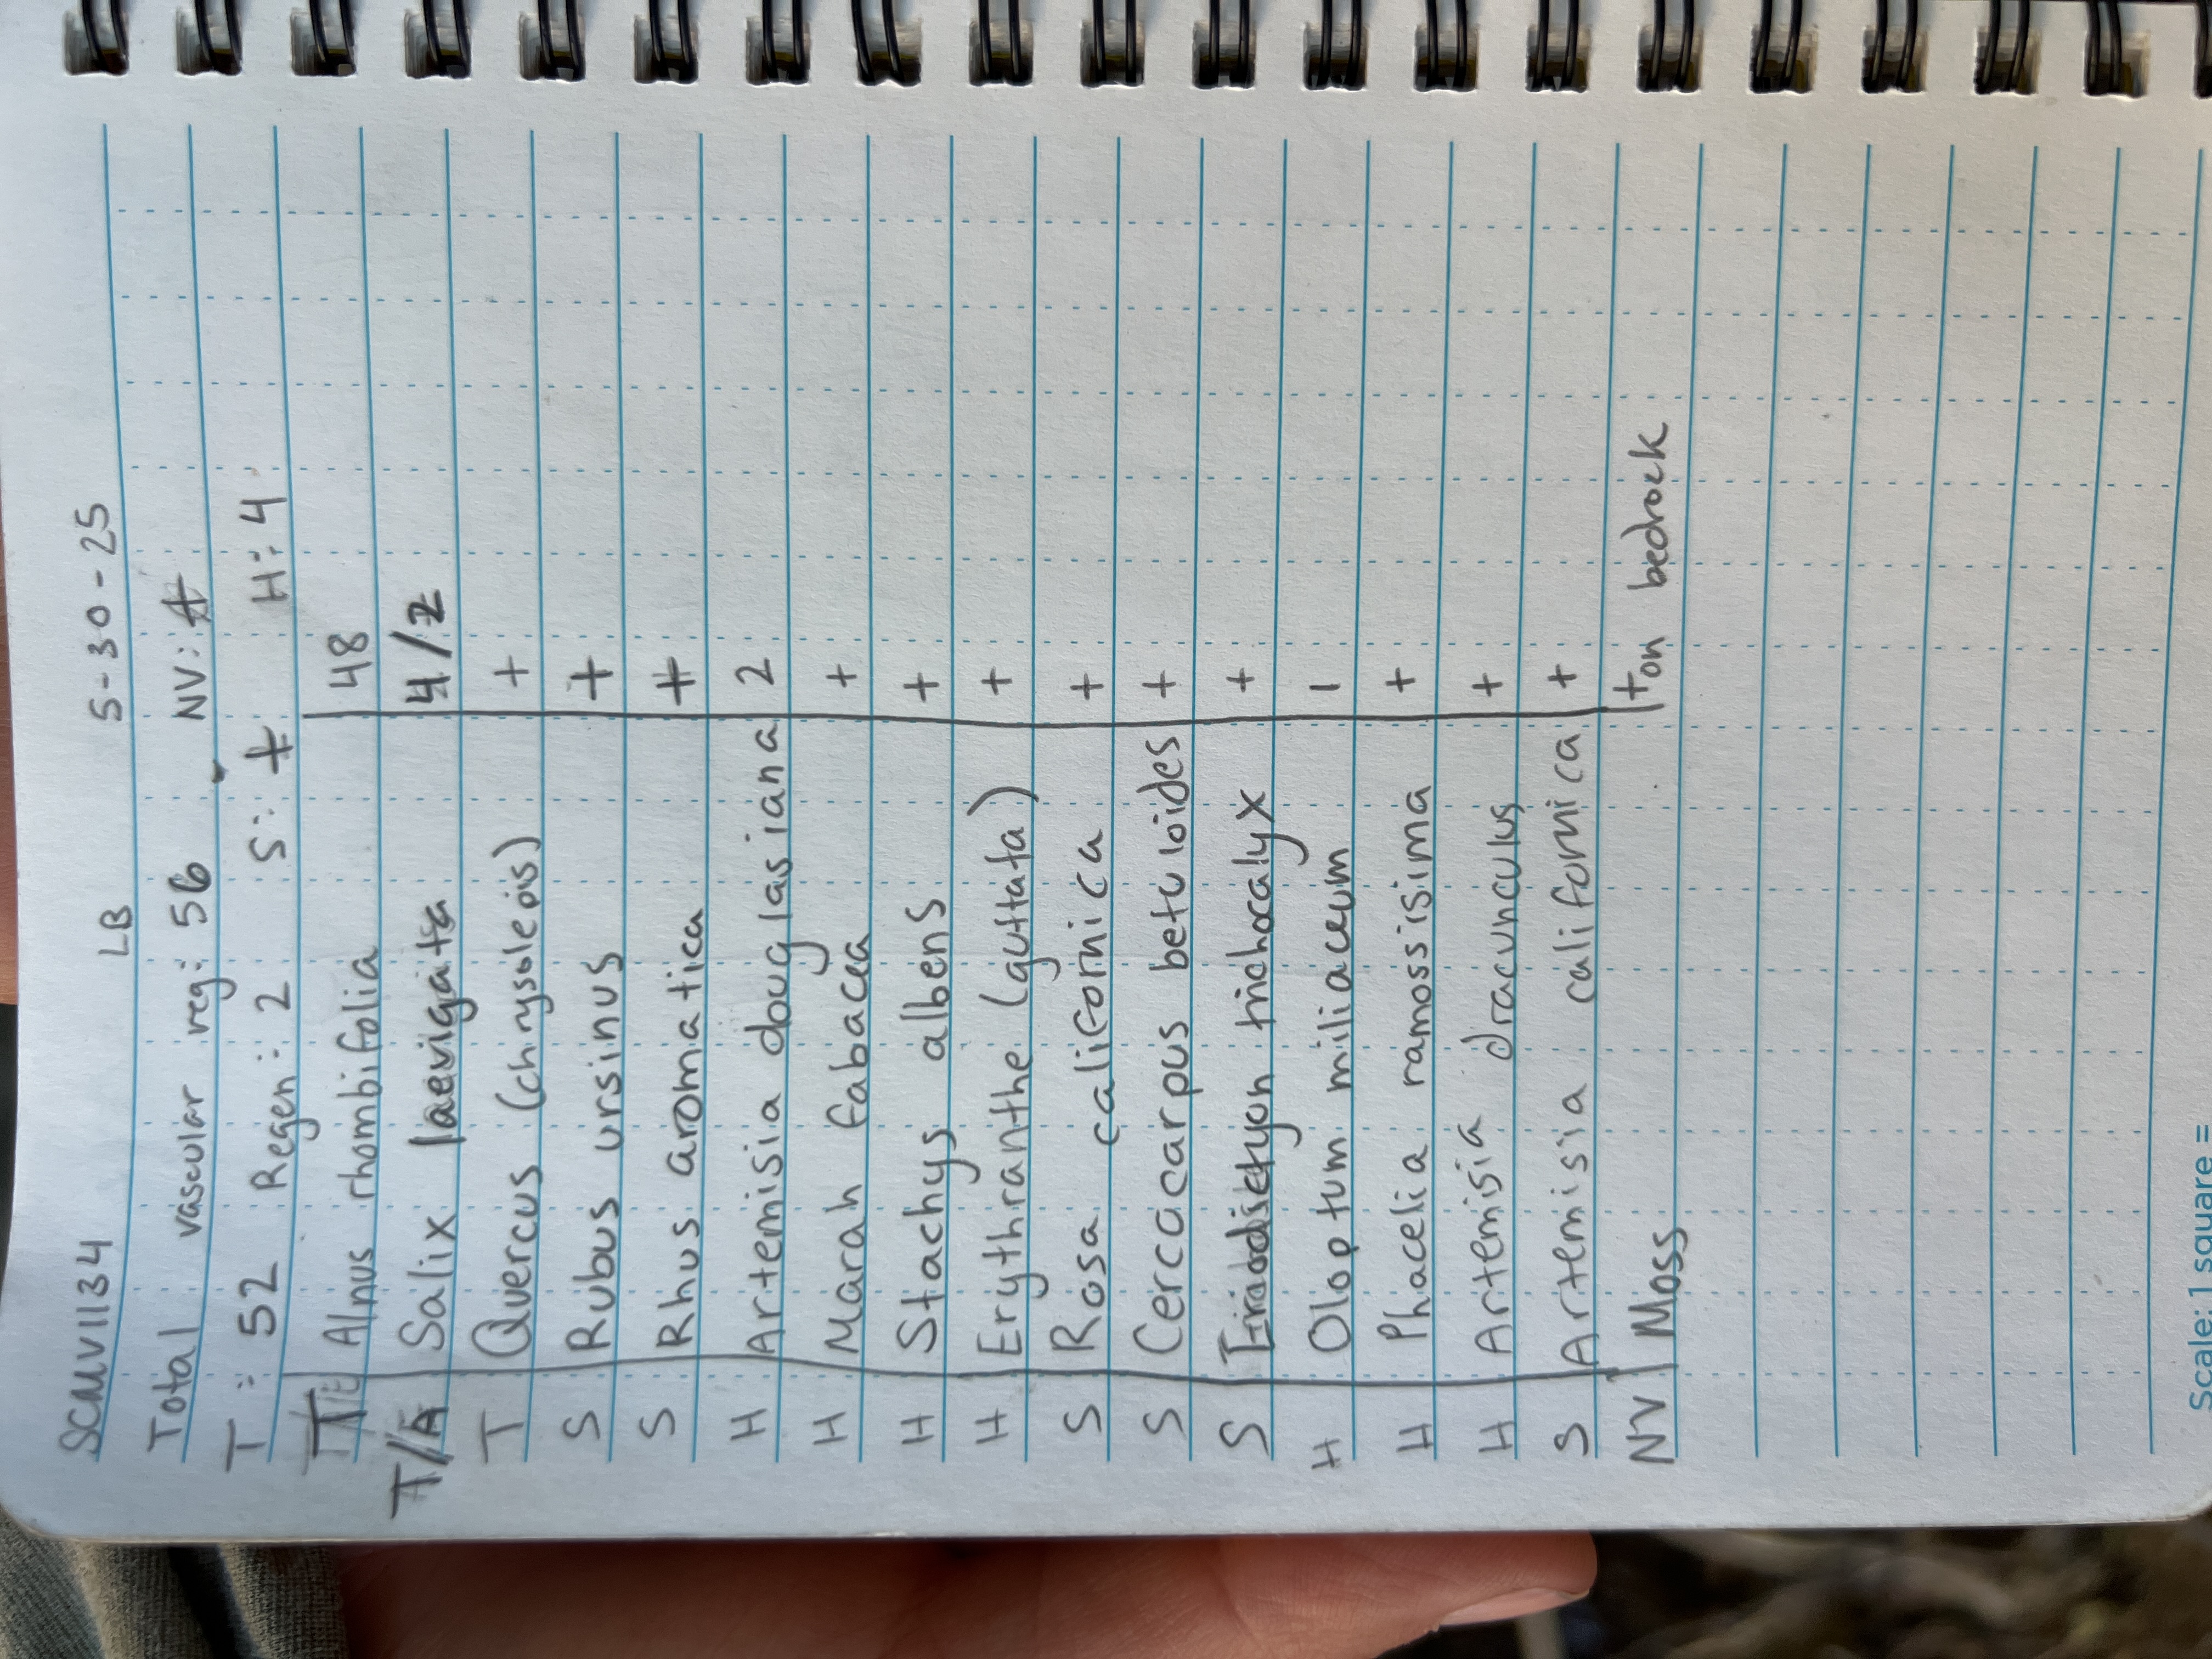 SCMV1134 LB 5-30-25
Total vascular veg: 56 NV: +
T: 52 Regen: 2 S: + H: 4
T Alnus rhombifolia 48
T/A Salix laevigata 4/2
T Quercus (chrysoleois) +
S Rubus ursinus +
S Rhus aromatica +
H Artemisia douglasiana 2
H Marah fabacea +
H Stachys albens +
H Erythranthe (guttata) +
S Rosa californica +
S Cercocarpus betuloides +
S trichocalyx +
H Oloptum miliaceum 1
H Phacelia ramossisima +
H Artemisia dracunculus +
S Artemisia californica +
NV Moss + on bedrock
Scale: 1 square =